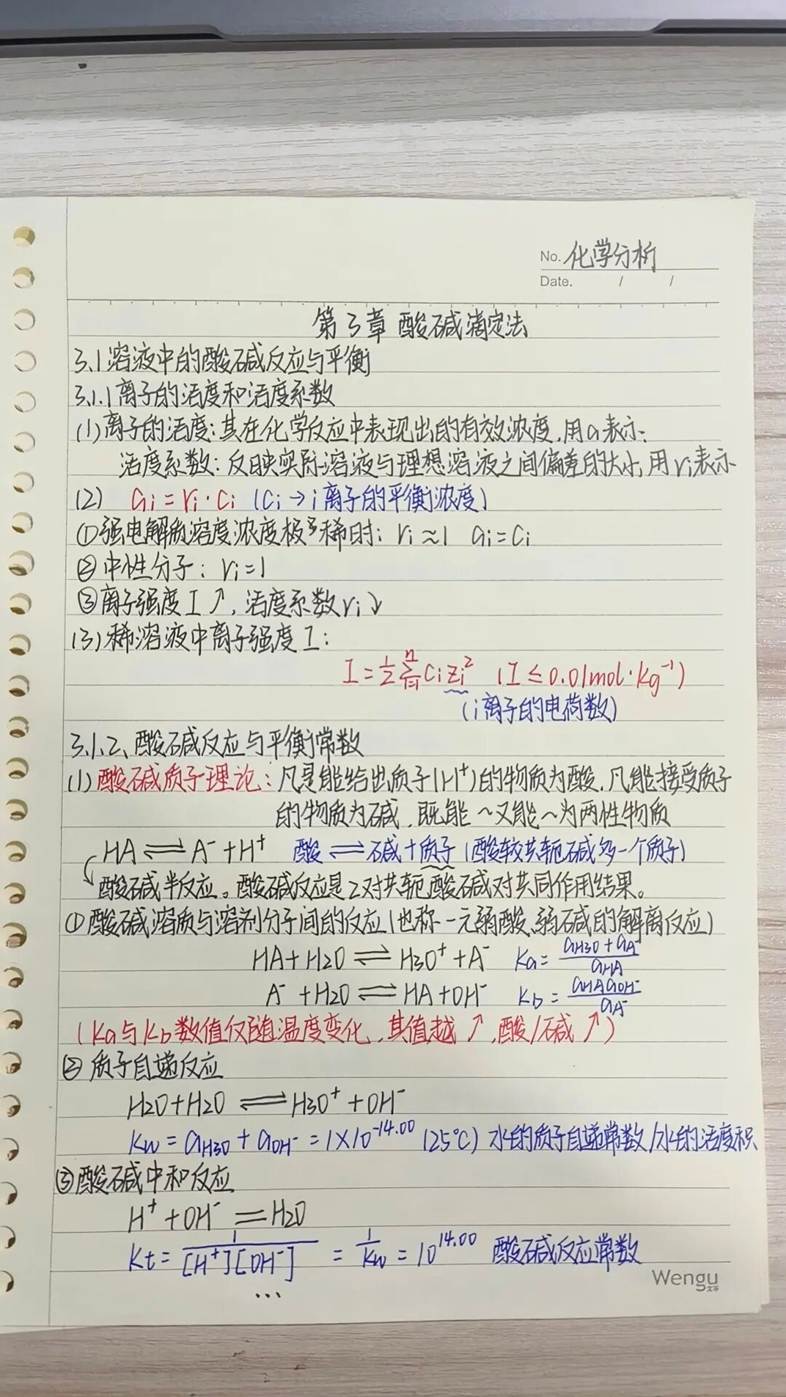 No. 化学分析
Date. / /
第3章 酸碱滴定法
3.1溶液中的酸碱反应与平衡
3.1.1离子的活度和活度系数
(1)离子的活度:其在化学反应中表现出的有效浓度,用a表示;
活度系数:反映实际溶液与理想溶液之间偏差的大小,用γi表示
(2) ai=γi·ci (ci→i离子的平衡浓度)
①强电解质溶度浓度极稀时:γi≈1 ai=ci
②中性分子:γi=1
③离子强度I↗,活度系数γi↘
(3)稀溶液中离子强度I:
I=½∑ⁿᵢ₌₁cizi² (I≤0.01mol·kg⁻¹)
(i离子的电荷数)
3.1.2、酸碱反应与平衡常数
(1)酸碱质子理论:凡是能给出质子(H⁺)的物质为酸,凡能接受质子
的物质为碱,既能~又能~为两性物质
HA⇌A⁻+H⁺ 酸⇌碱+质子(酸较共轭碱多一个质子)
酸碱半反应。酸碱反应是2对共轭酸碱对共同作用结果。
①酸碱溶质与溶剂分子间的反应(也称一元弱酸、弱碱的解离反应)
HA+H2O⇌H3O⁺+A⁻ Ka=aH3O+aA⁻/aHA
A⁻+H2O⇌HA+OH⁻ Kb=aHAaOH⁻/aA⁻
(Ka与Kb数值仅随温度变化,其值越↗,酸/碱↗)
②质子自递反应
H2O+H2O⇌H3O⁺+OH⁻
Kw=aH3O+aOH⁻=1×10⁻¹⁴·⁰⁰(25℃)水的质子自递常数/水的活度积
③酸碱中和反应
H⁺+OH⁻=H2O
Kt=1/[H⁺][OH⁻]=1/Kw=10¹⁴·⁰⁰ 酸碱反应常数
...
Wengu